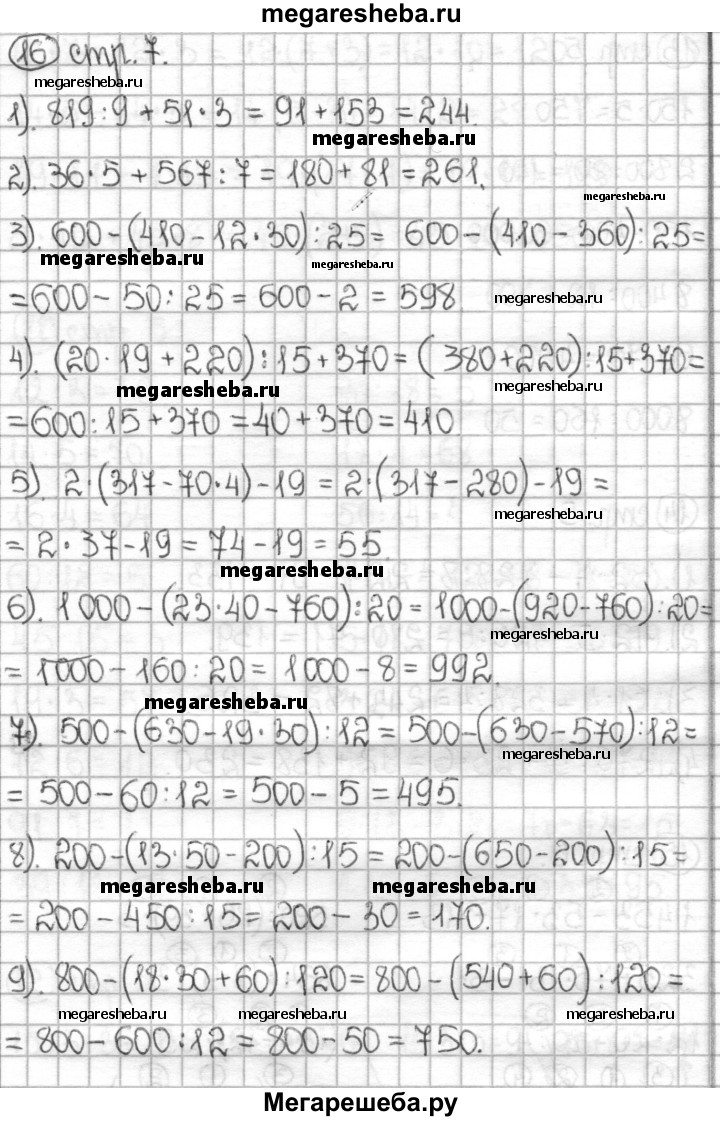 megaresheba.ru
16 стр. 7.
megaresheba.ru
1). 819:9 + 51·3 = 91 + 153 = 244.
megaresheba.ru
2). 36·5 + 567:7 = 180 + 81 = 261.
megaresheba.ru
3). 600-(410-12·30):25= 600-(410-360):25=
megaresheba.ru megaresheba.ru
=600-50:25=600-2=598 megaresheba.ru
4). (20·19+220):15+370=(380+220):15+370=
megaresheba.ru megaresheba.ru
=600:15+370=40+370=410
5). 2·(317-70·4)-19=2·(317-280)-19=
megaresheba.ru
=2·37-19=74-19=55
megaresheba.ru
6). 1000-(23·40-760):20=1000-(920-760):20=
megaresheba.ru
=1000-160:20=1000-8=992.
megaresheba.ru
7). 500-(630-19·30):12=500-(630-570):12=
megaresheba.ru
=500-60:12=500-5=495.
8). 200-(13·50-200):15=200-(650-200):15=
megaresheba.ru megaresheba.ru
=200-450:15=200-30=170.
9). 800-(18·30+60):120=800-(540+60):120=
megaresheba.ru megaresheba.ru megaresheba.ru
=800-600:12=800-50=750.
Мегарешеба.ру